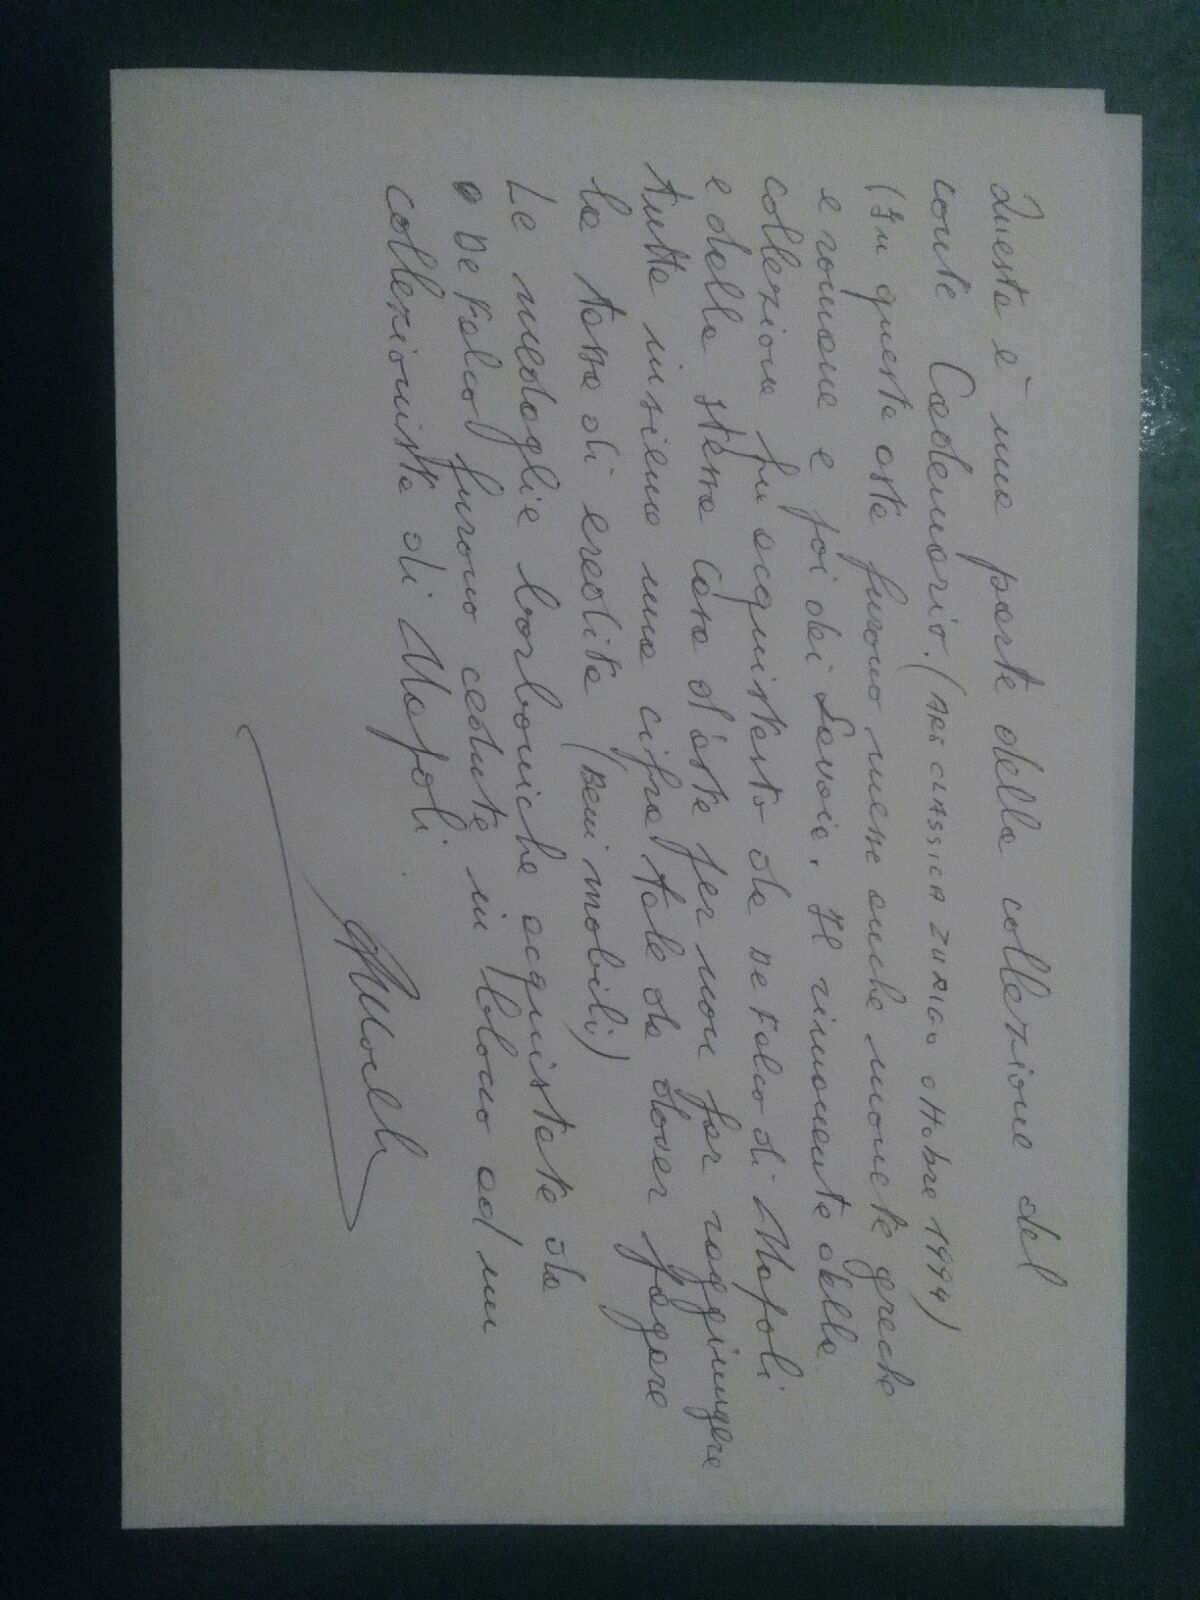 Questa è una parte della collezione del
conte Catemario. (ARS CLASSICA ZURIGO ottobre 1994)
(In questa asta furono messe anche monete greche
e romane e poi dei Savoia. Il rimanente della
collezione fu acquistato da De Falco di Napoli
e dalla stessa casa d'aste per non far raggiungere
tutta insieme una cifra tale da dover pagare
la tassa di eredità (Beni mobili)
Le medaglie borboniche acquistate da
De Falco furono cedute in blocco ad un
collezionista di Napoli.